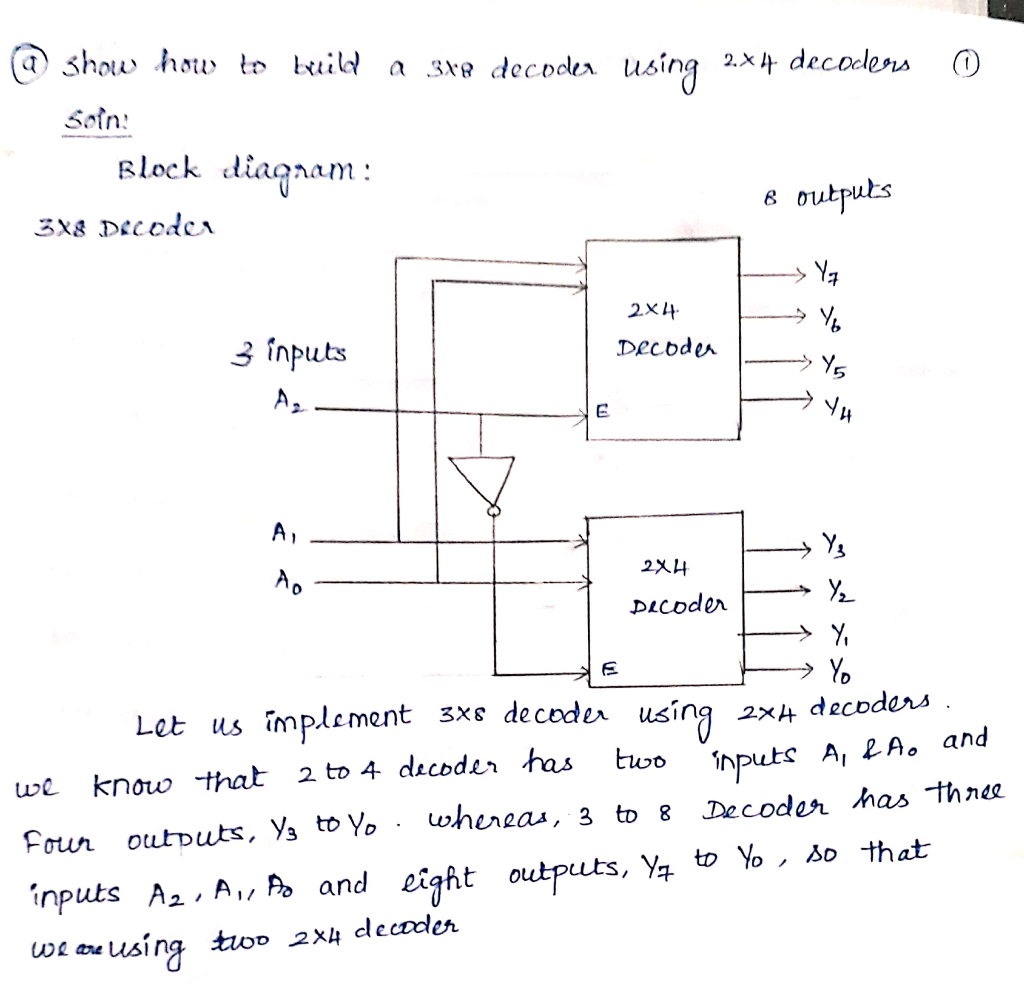 ⓐ show how to build a 3x8 decoder using 2x4 decoders ①
Soln:
Block diagram:
8 outputs
3x8 Decoder
Y7
2x4
Y6
3 inputs
Decoder
Y5
A2
E
Y4
A1
Y3
2x4
A0
Decoder
Y2
Y1
E
Y0
Let us implement 3x8 decoder using 2x4 decoders.
we know that 2 to 4 decoder has two inputs A1 & A0 and
Four outputs, Y3 to Y0. whereas, 3 to 8 Decoder has three
inputs A2, A1, A0 and eight outputs, Y7 to Y0, so that
we are using two 2x4 decoder